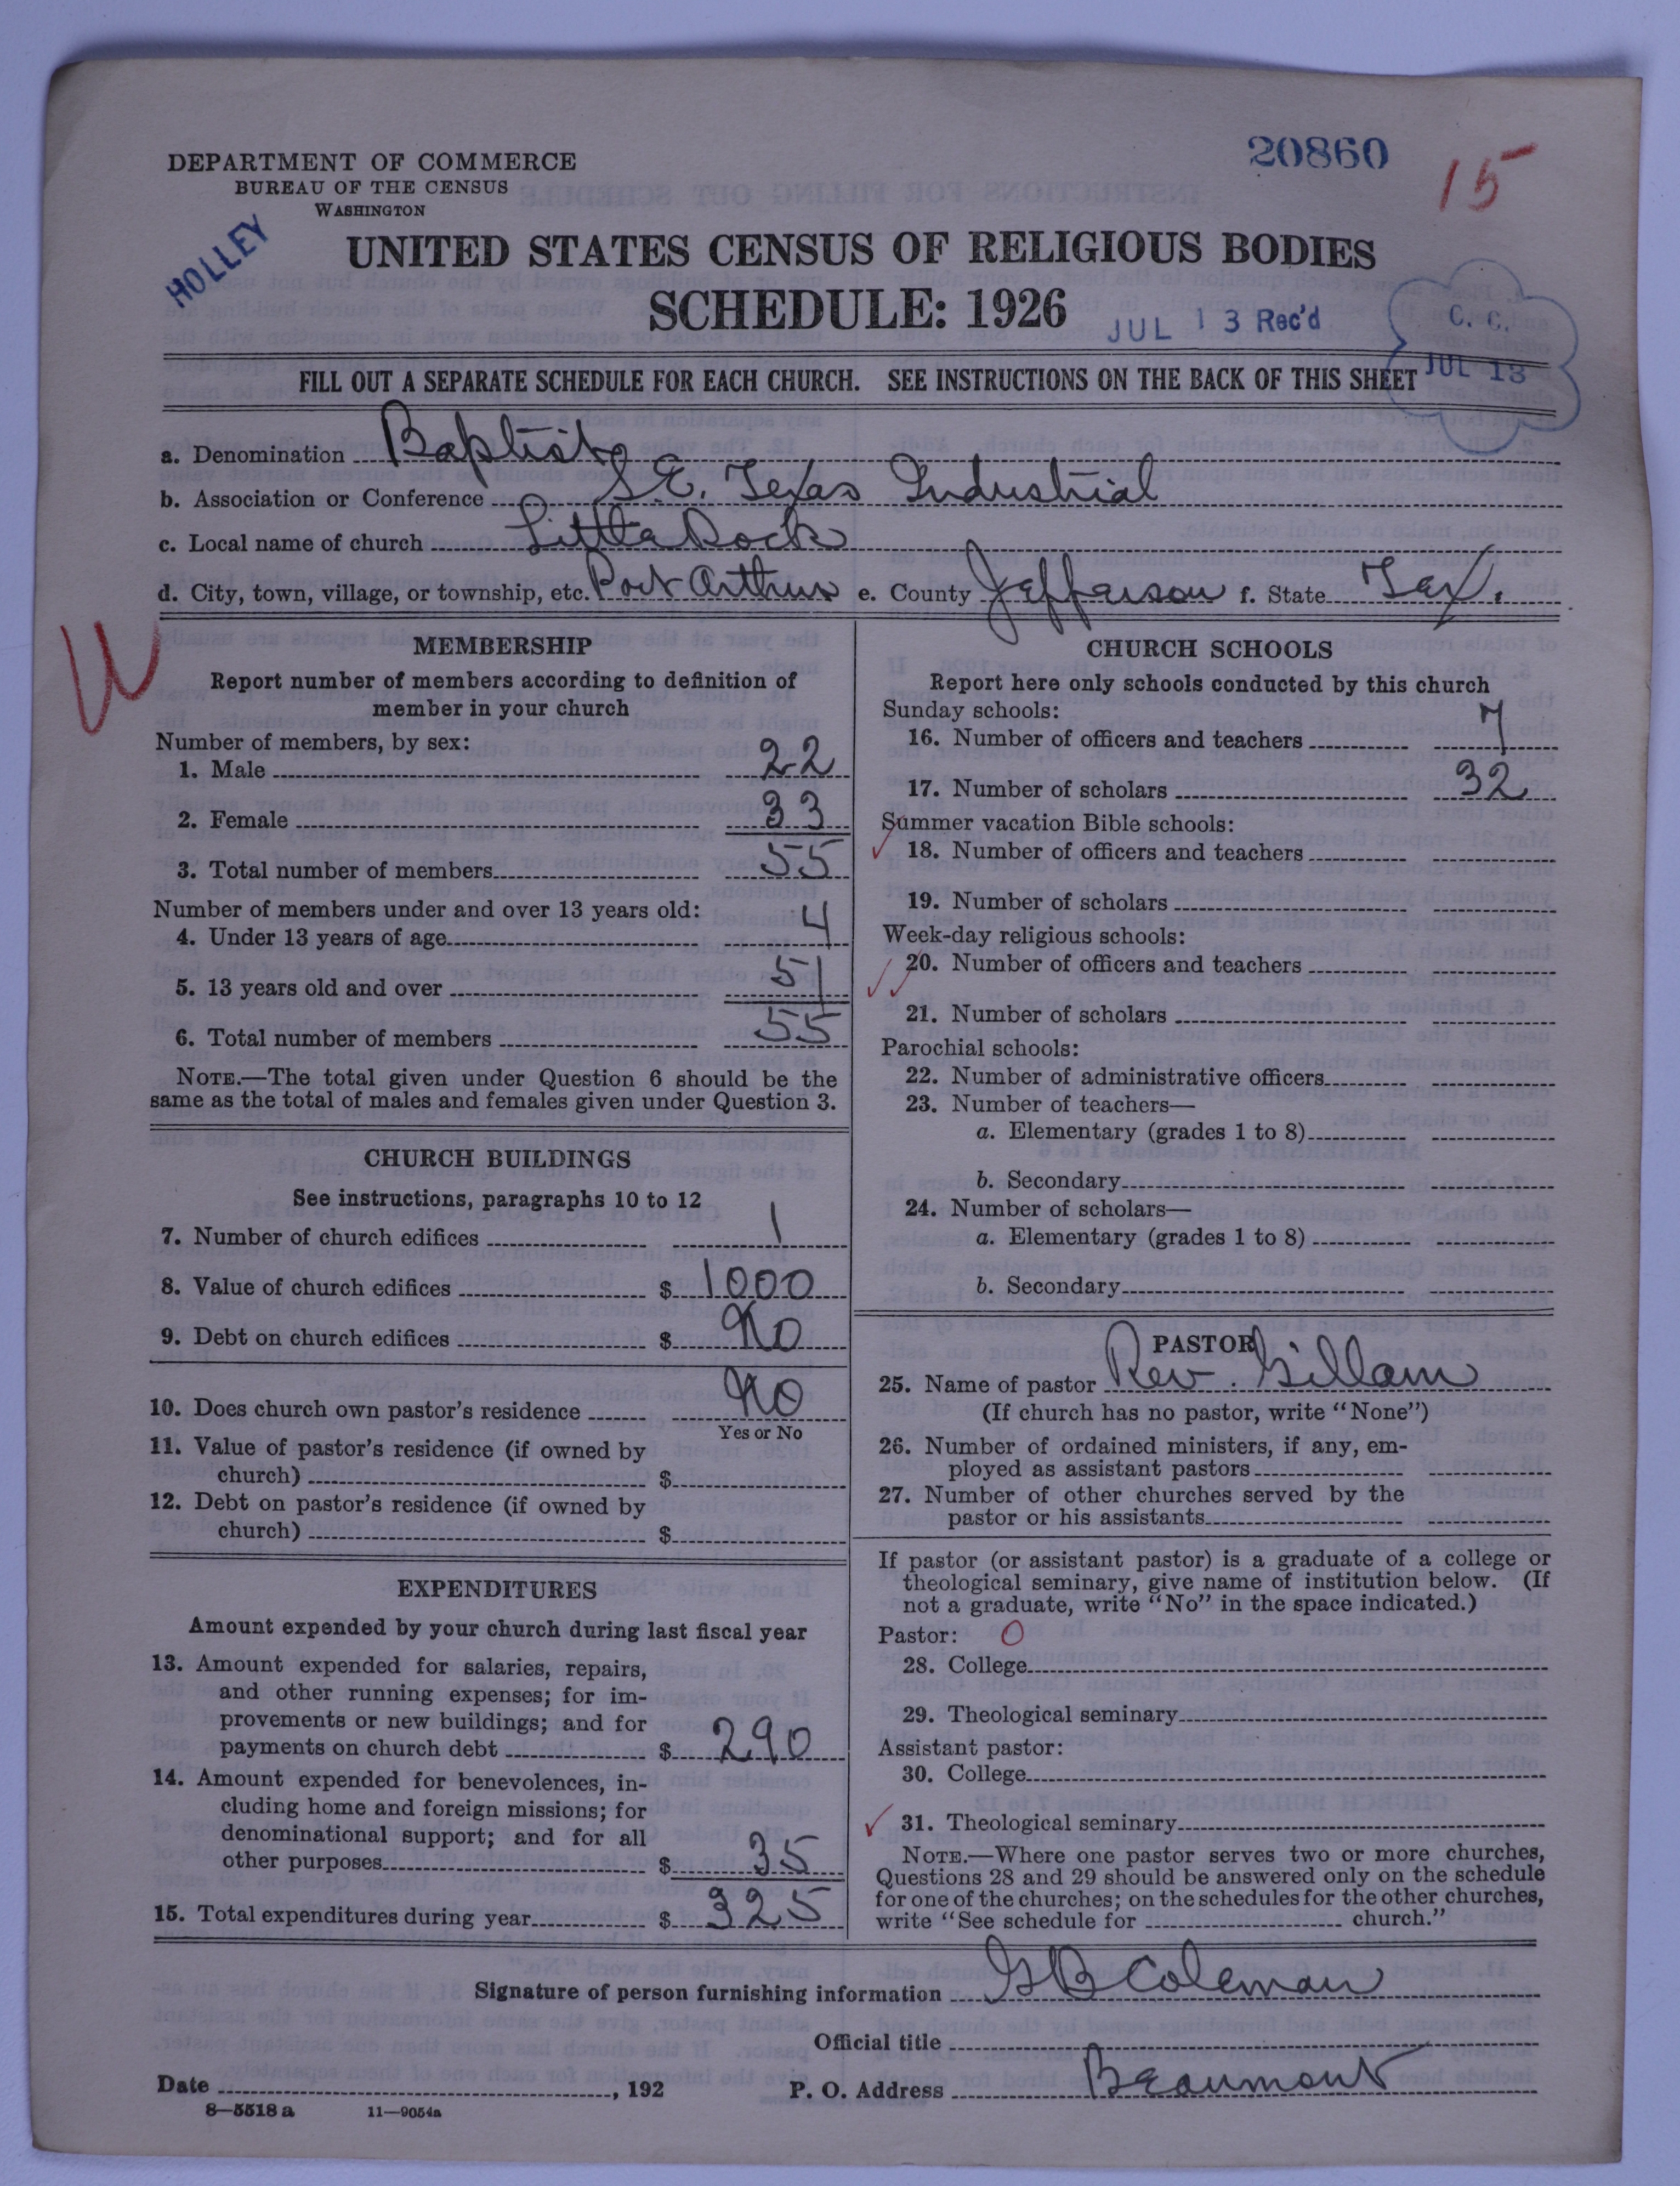 20860
15
DEPARTMENT OF COMMERCE
BUREAU OF THE CENSUS
WASHINGTON
HOLLEY
UNITED STATES CENSUS OF RELIGIOUS BODIES
SCHEDULE: 1926
JUL 13 Rec'd
C. C.
JUL 13
FILL OUT A SEPARATE SCHEDULE FOR EACH CHURCH. SEE INSTRUCTIONS ON THE BACK OF THIS SHEET
a. Denomination Baptist
b. Association or Conference S.E. Texas Industrial
c. Local name of church Little Rock
d. City, town, village, or township, etc. Port Arthur e. County Jefferson f. State Tex.
W
MEMBERSHIP
Report number of members according to definition of
member in your church
Number of members, by sex:
1. Male 22
2. Female 33
3. Total number of members 55
Number of members under and over 13 years old:
4. Under 13 years of age 4
5. 13 years old and over 51
6. Total number of members 55
NOTE.—The total given under Question 6 should be the
same as the total of males and females given under Question 3.
CHURCH BUILDINGS
See instructions, paragraphs 10 to 12
7. Number of church edifices 1
8. Value of church edifices $ 1000
9. Debt on church edifices $ No
10. Does church own pastor's residence No
Yes or No
11. Value of pastor's residence (if owned by
church) $
12. Debt on pastor's residence (if owned by
church) $
EXPENDITURES
Amount expended by your church during last fiscal year
13. Amount expended for salaries, repairs,
and other running expenses; for im-
provements or new buildings; and for
payments on church debt $ 290
14. Amount expended for benevolences, in-
cluding home and foreign missions; for
denominational support; and for all
other purposes $ 35
15. Total expenditures during year $ 325
CHURCH SCHOOLS
Report here only schools conducted by this church
Sunday schools:
16. Number of officers and teachers 7
17. Number of scholars 32
Summer vacation Bible schools:
18. Number of officers and teachers
19. Number of scholars
Week-day religious schools:
20. Number of officers and teachers
21. Number of scholars
Parochial schools:
22. Number of administrative officers
23. Number of teachers—
a. Elementary (grades 1 to 8)
b. Secondary
24. Number of scholars—
a. Elementary (grades 1 to 8)
b. Secondary
PASTOR
25. Name of pastor Rev. Gillam
(If church has no pastor, write "None")
26. Number of ordained ministers, if any, em-
ployed as assistant pastors
27. Number of other churches served by the
pastor or his assistants
If pastor (or assistant pastor) is a graduate of a college or
theological seminary, give name of institution below. (If
not a graduate, write "No" in the space indicated.)
Pastor: O
28. College
29. Theological seminary
Assistant pastor:
30. College
31. Theological seminary
NOTE.—Where one pastor serves two or more churches,
Questions 28 and 29 should be answered only on the schedule
for one of the churches; on the schedules for the other churches,
write "See schedule for church."
Signature of person furnishing information G B Coleman
Official title
Date , 192 P. O. Address Beaumont
8—5518 a 11—9054a